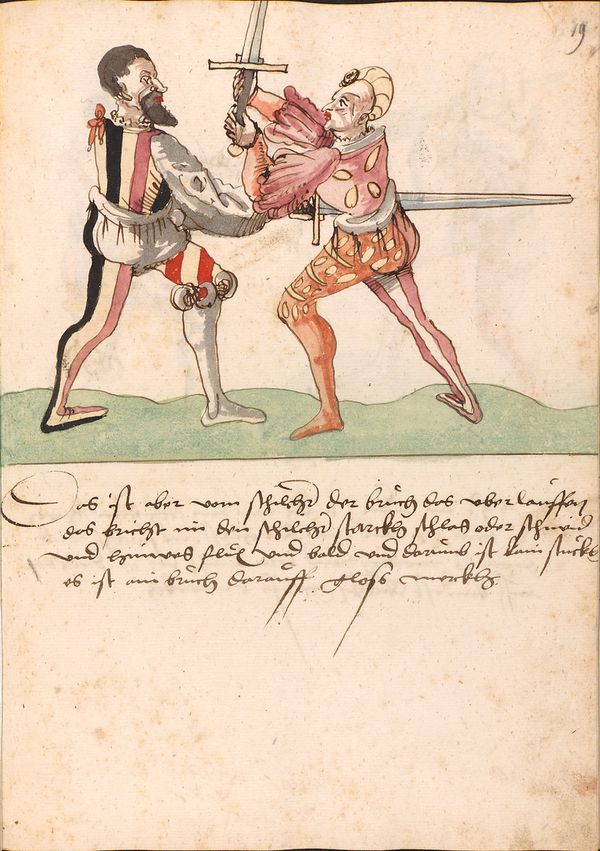 19
Das ist aber vom schilcher der bruch das uber lauffen
das bricht im den schilcher starckh schlag oder schneid
und hinweg flux und bald und darumb ist kain stuckh
es ist ain bruch darauff gloss merckh